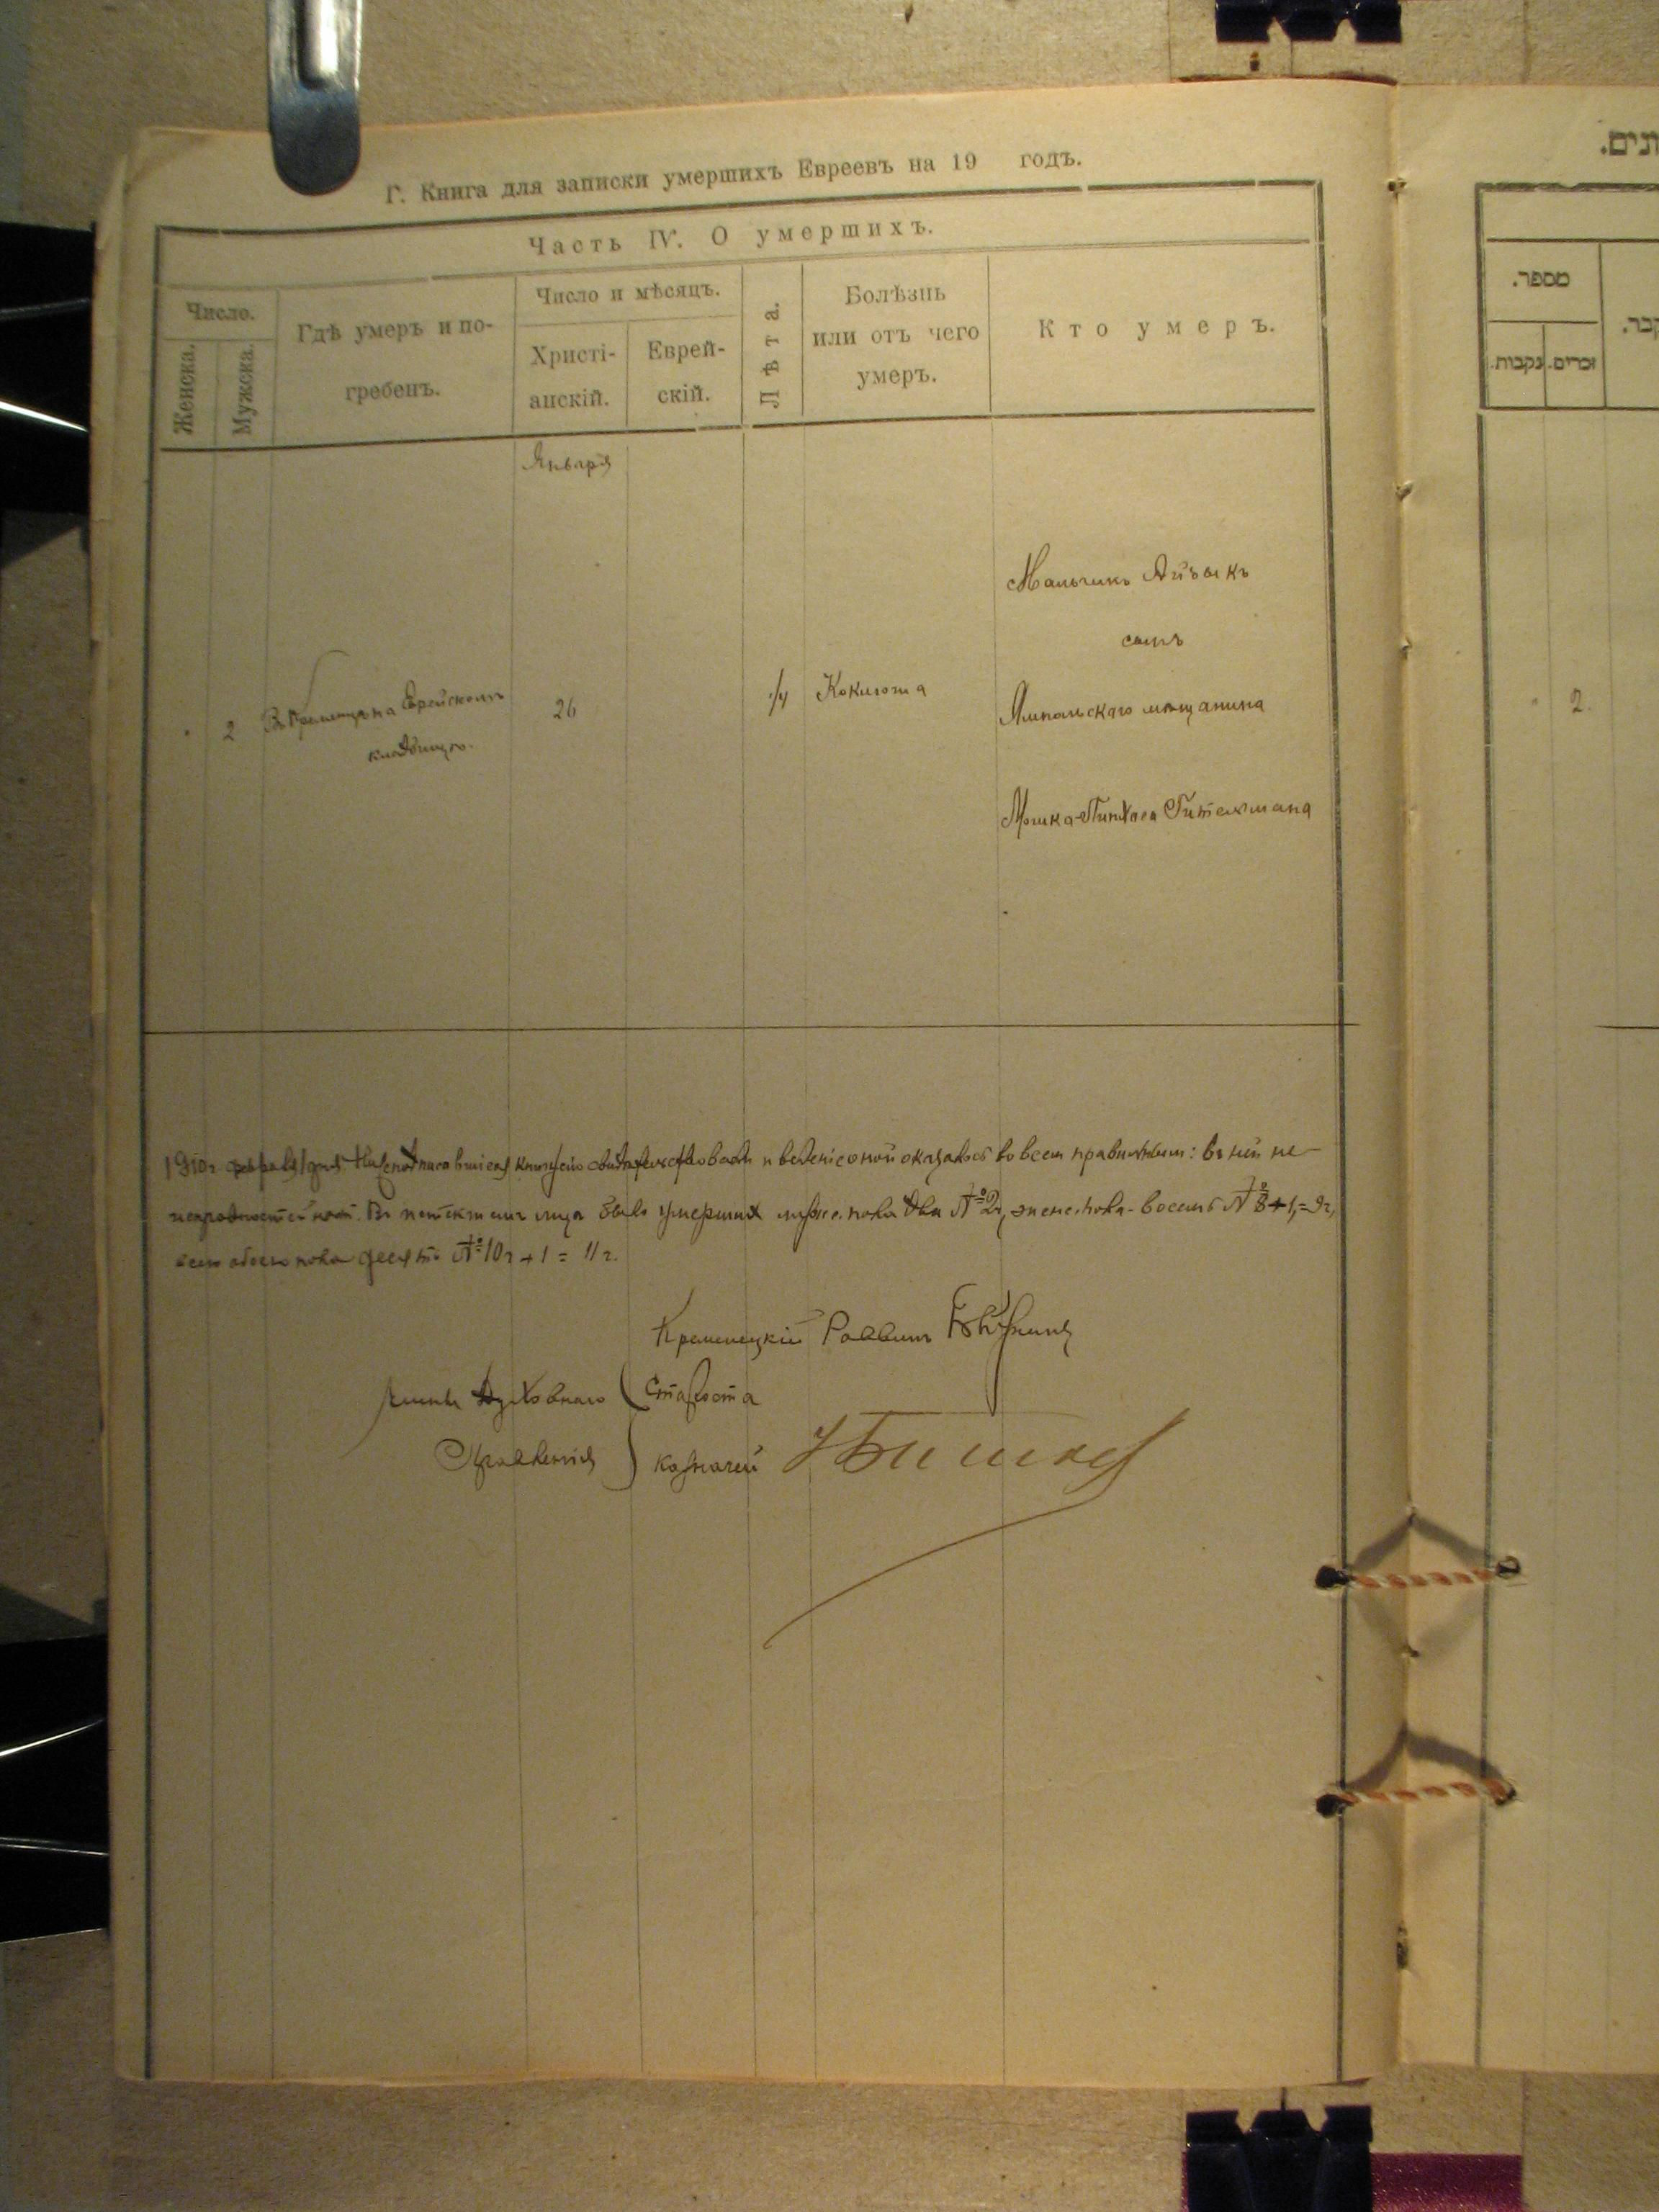 Г. Книга для записки умершихъ Евреевъ на 19 годъ.
Часть IV. О умершихъ.
Число.
Женска.
Мужска.
Гдѣ умеръ и по-
гребенъ.
Число и мѣсяцъ.
Христі-
анскій.
Еврей-
скій.
Лѣта.
Болѣзнь
или отъ чего
умеръ.
Кто умеръ.
Января
2
на Еврейскомъ
кладбищѣ.
26
Коклюша
Мальчикъ Айзыкъ
сынъ
Ямпольскаго мѣщанина
Мошка-Пинхаса Гительмана
1910 г. февраля 1 дня книгу сію свидѣтельствовали и веденіе оной оказалось во всемъ правильнымъ: въ ней не-
исправностей нѣтъ. Въ было умершихъ мужес. пола два №2, женс. пола - восемь № 8+1,=9
всего обоего пола десять № 10 + 1 = 11
Кременецкій Раввинъ
Члены Духовнаго Староста
Правленія казначей
מספר.
נקבות.
זכרים.
2.